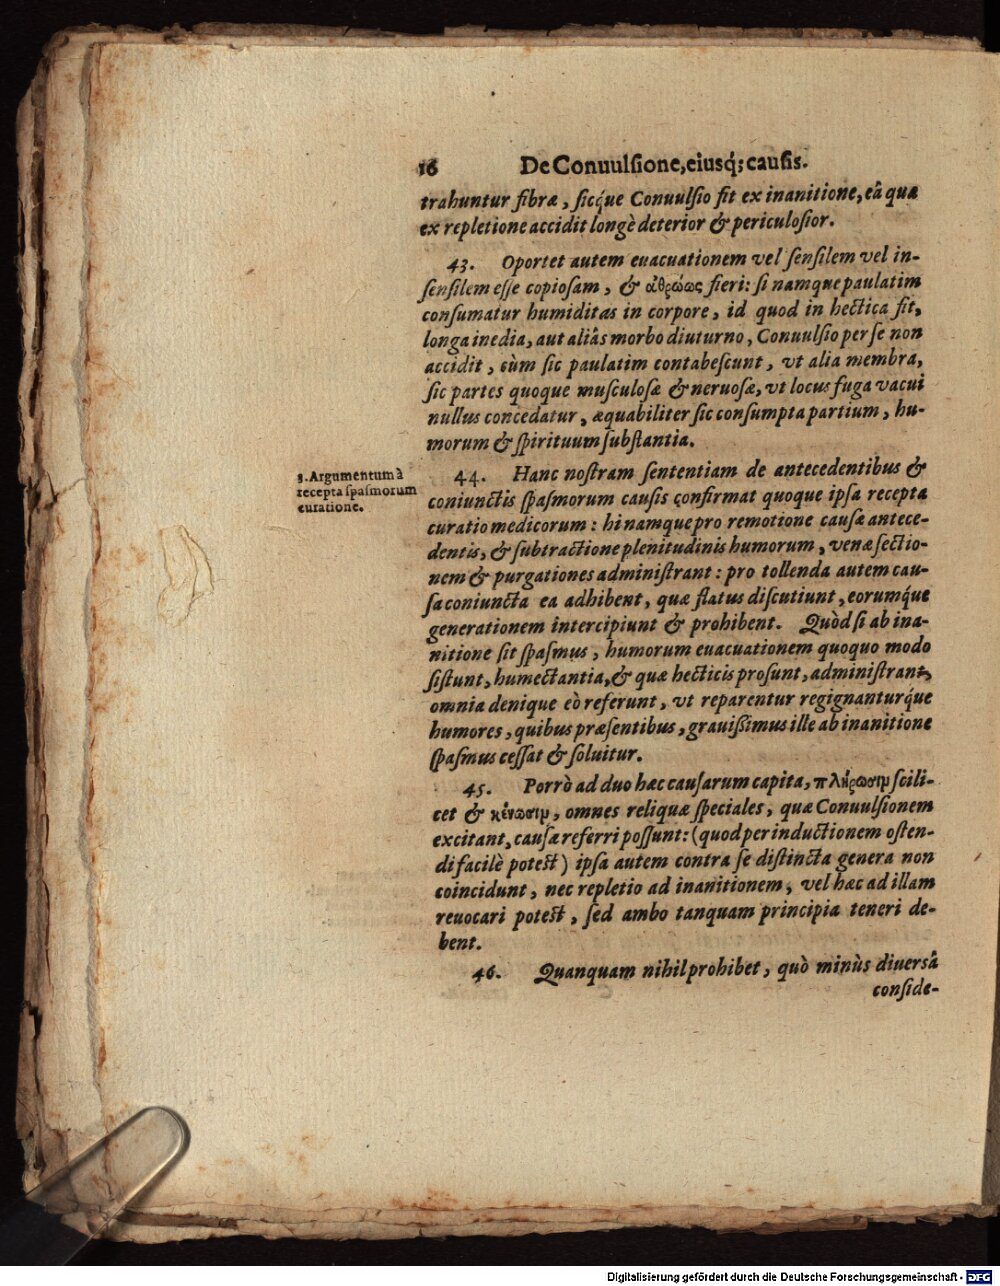 16 De Conuulsione, eiusq́; causis.
trahuntur fibræ, sicq́ue Conuulsio fit ex inanitione, eâ quæ
ex repletione accidit longè deterior & periculosior.
43. Oportet autem euacuationem vel sensilem vel in-
sensilem esse copiosam, & ἀθρώως fieri: si namque paulatim
consumatur humiditas in corpore, id quod in hectica fit,
longa inedia, aut aliâs morbo diuturno, Conuulsio per se non
accidit, cùm sic paulatim contabescunt, vt alia membra,
sic partes quoque musculosæ & neruosæ, vt locus fuga vacui
nullus concedatur, æquabiliter sic consumpta partium, hu-
morum & spirituum substantia.
3. Argumentum à
recepta spasmorum
curatione.
44. Hanc nostram sententiam de antecedentibus &
coniunctis spasmorum causis confirmat quoque ipsa recepta
curatio medicorum: hi namque pro remotione causæ antece-
dentis, & subtractione plenitudinis humorum, venæ sectio-
nem & purgationes administrant: pro tollenda autem cau-
sa coniuncta ea adhibent, quæ flatus discutiunt, eorumq́ue
generationem intercipiunt & prohibent. Quòd si ab ina-
nitione sit spasmus, humorum euacuationem quoquo modo
sistunt, humectantia, & quæ hecticis prosunt, administrant,
omnia denique eò referunt, vt reparentur regignanturq́ue
humores, quibus præsentibus, grauißimus ille ab inanitione
spasmus cessat & soluitur.
45. Porrò ad duo hæc causarum capita, πλήρωσιμ scili-
cet & κένωσιμ, omnes reliquæ speciales, quæ Conuulsionem
excitant, causæ referri possunt: (quod per inductionem osten-
di facilè potest) ipsa autem contra se distincta genera non
coincidunt, nec repletio ad inanitionem, vel hæc ad illam
reuocari potest, sed ambo tanquam principia teneri de-
bent.
46. Quanquam nihil prohibet, quò minùs diuersâ
conside-
Digitalisierung gefördert durch die Deutsche Forschungsgemeinschaft - DFG